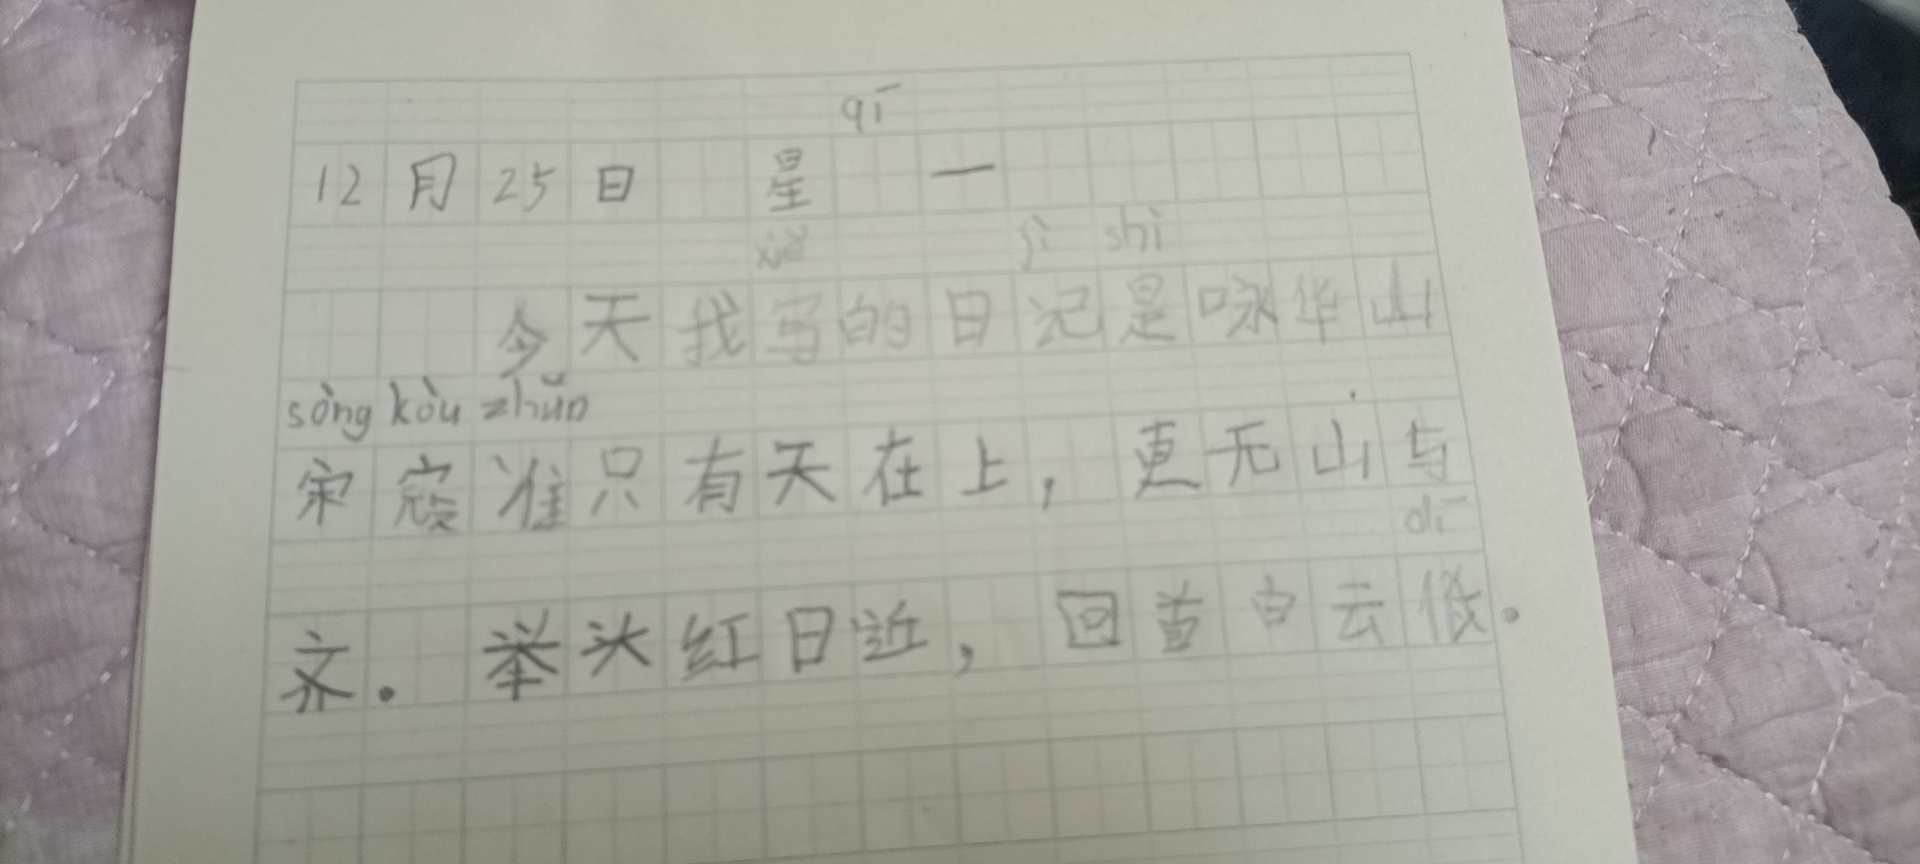 qī
12月25日 星 一
xiě jì shì
今天我写的日记是咏华山
sòng kòu zhǔn
宋寇准只有天在上，更无山与
dī
齐. 举头红日近，回首白云低.